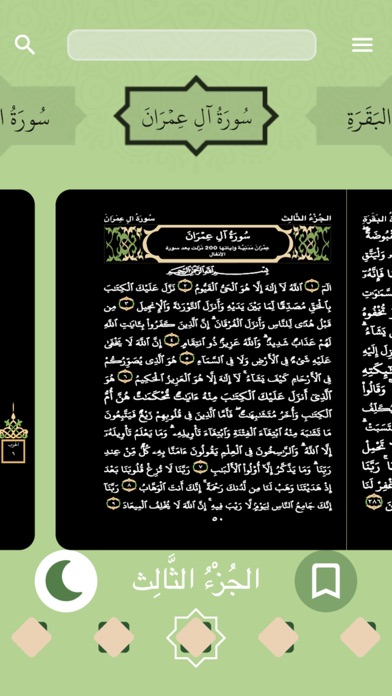 البَقَرَةِ
سُورَةُ آلِ عِمْرَانَ
سُورَةُ
الجُزْءُ الثَّالِث
سُورَةُ آلِ عِمْرَانَ
سُورَةُ آلِ عِمْرَانَ
عِمْرَانَ مَدَنِيَّة وَآياتها 200 نزلت بعد سورة
الأنفال
بِسْمِ ٱللَّهِ ٱلرَّحْمَٰنِ ٱلرَّحِيمِ
الٓمٓ ١ ٱللَّهُ لَآ إِلَٰهَ إِلَّا هُوَ ٱلْحَىُّ ٱلْقَيُّومُ ٢ نَزَّلَ عَلَيْكَ ٱلْكِتَٰبَ
بِٱلْحَقِّ مُصَدِّقًا لِّمَا بَيْنَ يَدَيْهِ وَأَنزَلَ ٱلتَّوْرَىٰةَ وَٱلْإِنجِيلَ ٣ مِن
قَبْلُ هُدًى لِّلنَّاسِ وَأَنزَلَ ٱلْفُرْقَانَ ۗ إِنَّ ٱلَّذِينَ كَفَرُوا۟ بِـَٔايَٰتِ ٱللَّهِ
لَهُمْ عَذَابٌ شَدِيدٌ ۗ وَٱللَّهُ عَزِيزٌ ذُو ٱنتِقَامٍ ٤ إِنَّ ٱللَّهَ لَا يَخْفَىٰ
عَلَيْهِ شَىْءٌ فِى ٱلْأَرْضِ وَلَا فِى ٱلسَّمَآءِ ٥ هُوَ ٱلَّذِى يُصَوِّرُكُمْ
فِى ٱلْأَرْحَامِ كَيْفَ يَشَآءُ ۚ لَآ إِلَٰهَ إِلَّا هُوَ ٱلْعَزِيزُ ٱلْحَكِيمُ ٦ هُوَ
ٱلَّذِىٓ أَنزَلَ عَلَيْكَ ٱلْكِتَٰبَ مِنْهُ ءَايَٰتٌ مُّحْكَمَٰتٌ هُنَّ أُمُّ
ٱلْكِتَٰبِ وَأُخَرُ مُتَشَٰبِهَٰتٌ ۖ فَأَمَّا ٱلَّذِينَ فِى قُلُوبِهِمْ زَيْغٌ فَيَتَّبِعُونَ
مَا تَشَٰبَهَ مِنْهُ ٱبْتِغَآءَ ٱلْفِتْنَةِ وَٱبْتِغَآءَ تَأْوِيلِهِۦ ۗ وَمَا يَعْلَمُ تَأْوِيلَهُۥٓ
إِلَّا ٱللَّهُ ۗ وَٱلرَّٰسِخُونَ فِى ٱلْعِلْمِ يَقُولُونَ ءَامَنَّا بِهِۦ كُلٌّ مِّنْ عِندِ
رَبِّنَا ۗ وَمَا يَذَّكَّرُ إِلَّآ أُو۟لُوا۟ ٱلْأَلْبَٰبِ ٧ رَبَّنَا لَا تُزِغْ قُلُوبَنَا بَعْدَ
إِذْ هَدَيْتَنَا وَهَبْ لَنَا مِن لَّدُنكَ رَحْمَةً ۚ إِنَّكَ أَنتَ ٱلْوَهَّابُ ٨ رَبَّنَآ
إِنَّكَ جَامِعُ ٱلنَّاسِ لِيَوْمٍ لَّا رَيْبَ فِيهِ ۚ إِنَّ ٱللَّهَ لَا يُخْلِفُ ٱلْمِيعَادَ ٩
٥٠
الجُزْءُ الثَّالِث